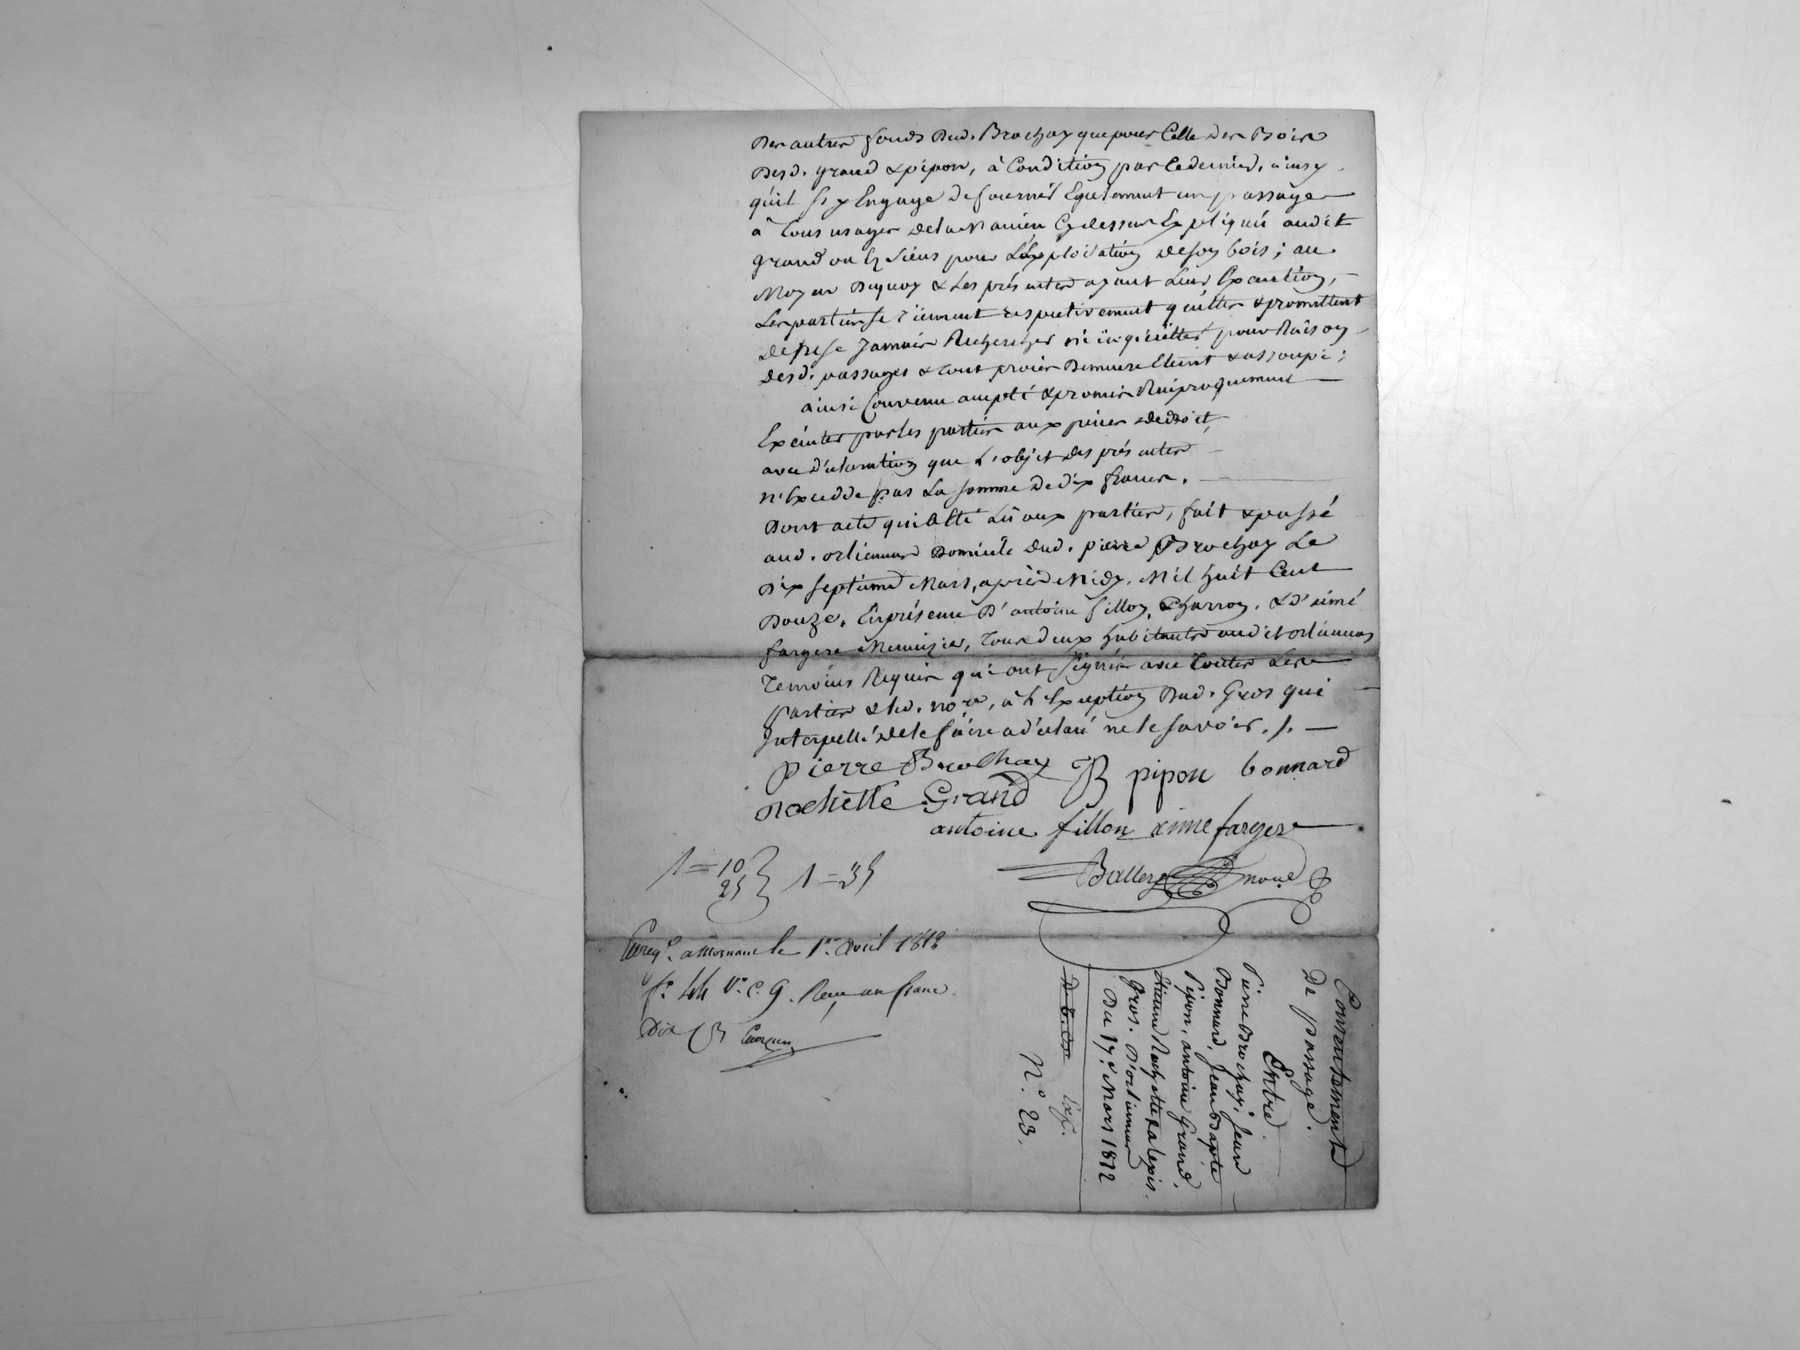 Des autres fonds dud. Brochay que pour Celle des Bois
Desd. grand & pipon, à Condition par Cedernier, ainsy
qu'il s'y Engage de fournir Egalement un passage
à Tous usages de la Maniere Cydessus Expliqué audit
grand ou les siens pour L'Exploitation de son bois; au
Moyen Dequoy & Les présentes ayant Leur Execution,
Les parties se tiennent respectivement quittes & promettent
de ne se Jamais Rechercher ni inquiétter pour Raison
desd. passages & tout procès Demeure Eteint & assoupi;
ainsi Convenu accepté & promis Réciproquement
Exécuter par les parties aux peines de droit,
avec déclaration que L'objet des présentes
n'Excedde pas La somme De dix francs.
Dont acte qui a Eté Lû aux parties, fait & passé
aud. orlienas Domicile dud. pierre Brochay Le
Dix septieme Mars, après Midy, Mil huit Cent
Douze, En présence D'antoine fillon, Charron, & d'aimé
fargere Menuisier, Tous deux habitants audit orlienas
Temoins Requis qui ont signés avec Toutes Les
parties & led. nore, à L'Exception Dud. Gros qui
Interpellé de le faire a déclaré ne le savoir. /. —
pierre Brochay JB pipon bonnard
Rochette Grand
antoine fillon aimé fargere
Balley nore
1 = 10
25 } 1 = 35
Enregé. a Mornant le 1er. Avril 1812
fo. 44 Vo. C. 9. Reçu un franc
Dix
Conventement
De passage.
Entre
Pierre Brochay, Jean
Bonnard, Jean Baptte
Pipon, antoine Grand,
Etienne Rochette & alexis
Gros. D'orlienas
Du 17e. Mars 1812
Exp.
No. 23.